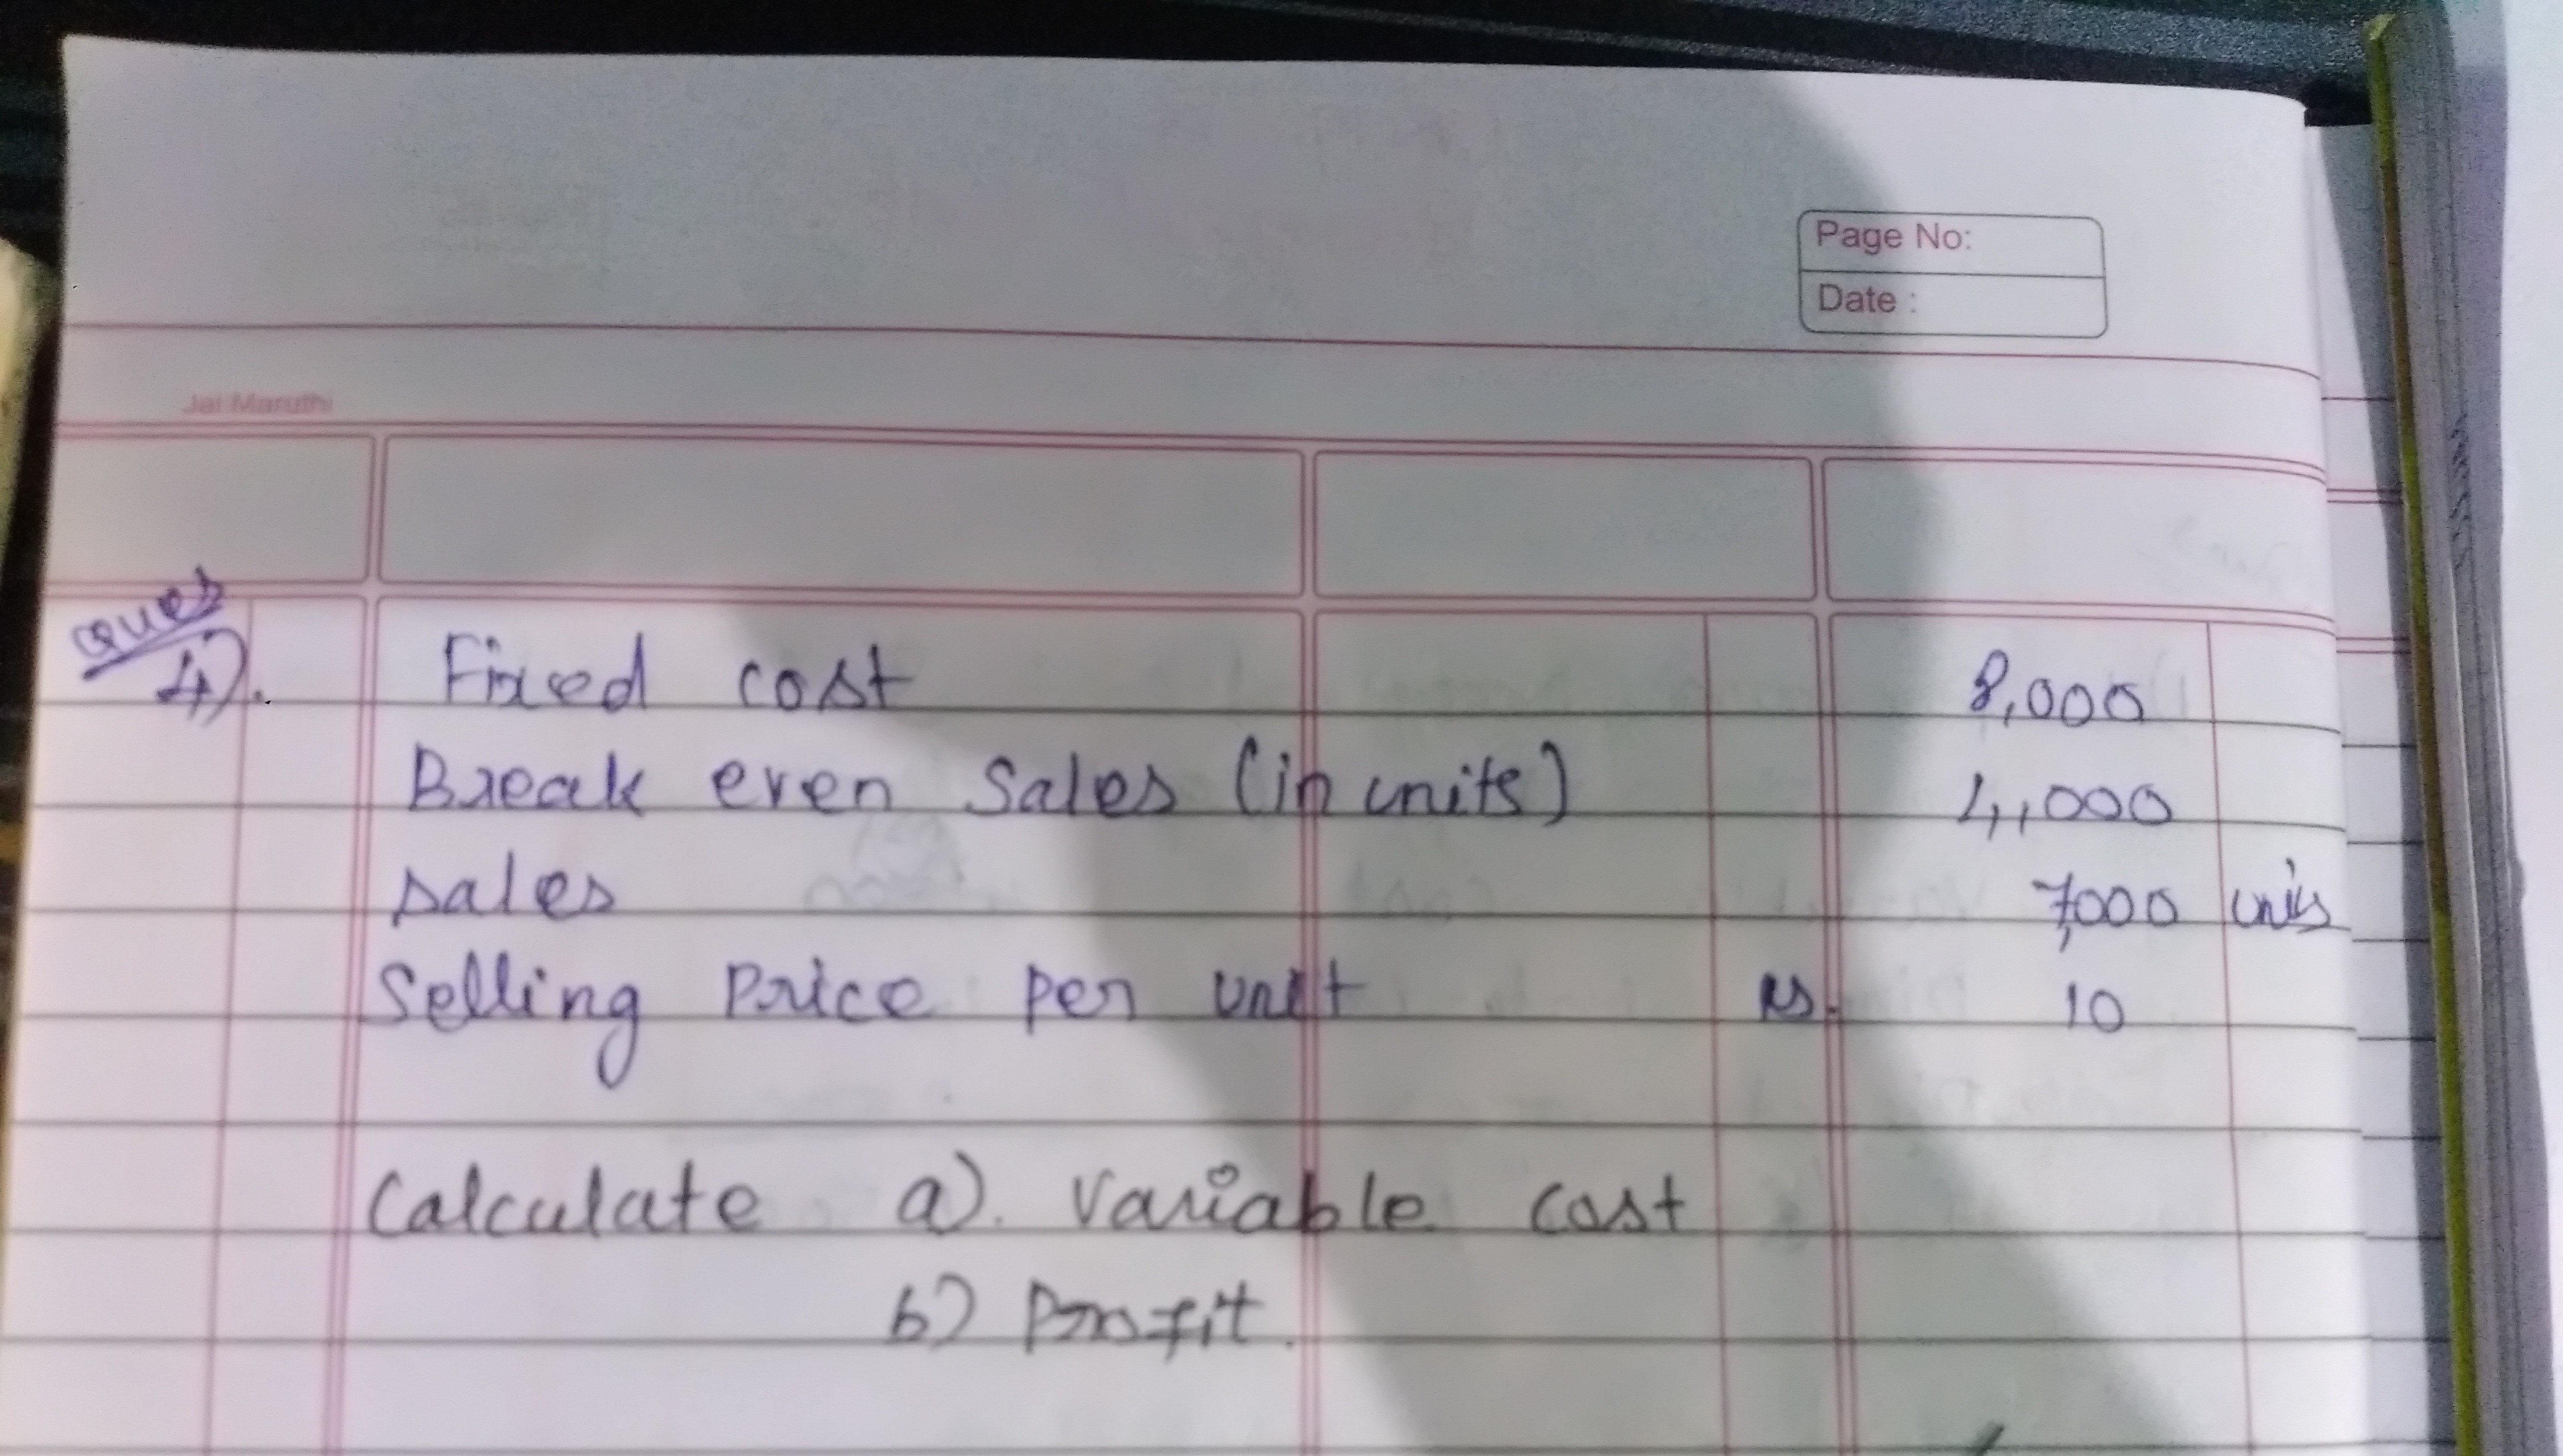 Page No:
Date :
Jai Maruthi
Ques
4). Fixed cost 8,000
Break even Sales (in units) 4,000
sales 7,000 units
Selling Price per unit Rs. 10
Calculate a). Variable cost
b) Profit.